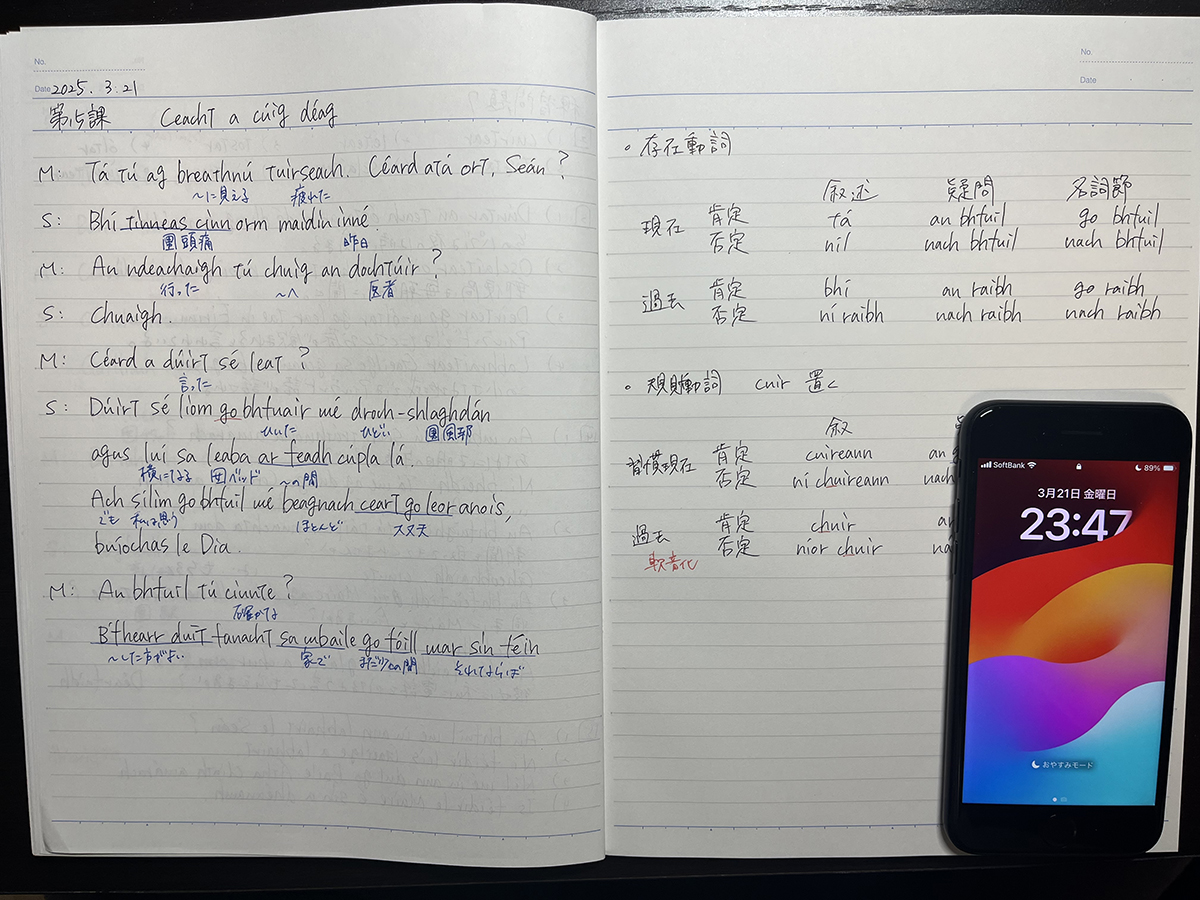 No.
Date 2025. 3. 21
第15課 Ceacht a cúig déag
M: Tá tú ag breathnú tuirseach. Céard atá ort, Seán?
〜に見える 疲れた
S: Bhí tinneas cinn orm maidin inné.
頭痛 昨日
M: An ndeachaigh tú chuig an dochtúir?
行った 〜へ 医者
S: Chuaigh.
M: Céard a dúirt sé leat?
言った
S: Dúirt sé liom go bhfuair mé droch-shlaghdán
ひいた ひどい 風邪
agus luí sa leaba ar feadh cúpla lá.
横になる ベッド 〜の間
Ach sílim go bhfuil mé beagnach ceart go leor anois,
でも 私は思う ほとんど 大丈夫
buíochas le Dia.
M: An bhfuil tú cinnte?
確かな
B'fhearr duit fanacht sa mbaile go fóill mar sin féin
〜した方がよい 家で まだ少しの間 それでならば
No.
Date
・存在動詞
叙述 疑問 名詞節
現在 肯定 tá an bhfuil go bhfuil
否定 níl nach bhfuil nach bhfuil
過去 肯定 bhí an raibh go raibh
否定 ní raibh nach raibh nach raibh
・規則動詞 cuir 置く
叙
習慣現在 肯定 cuireann an
否定 ní chuireann nach
過去 肯定 chuir
否定 níor chuir
軟音化
SoftBank 89%
3月21日 金曜日
23:47
おやすみモード